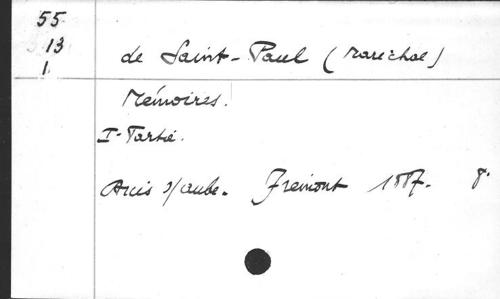 55
13
1
de Saint-Paul (Marechal)
Mémoires.
I-Partie.
Arcis s/aube. Fremont 1887. 8°